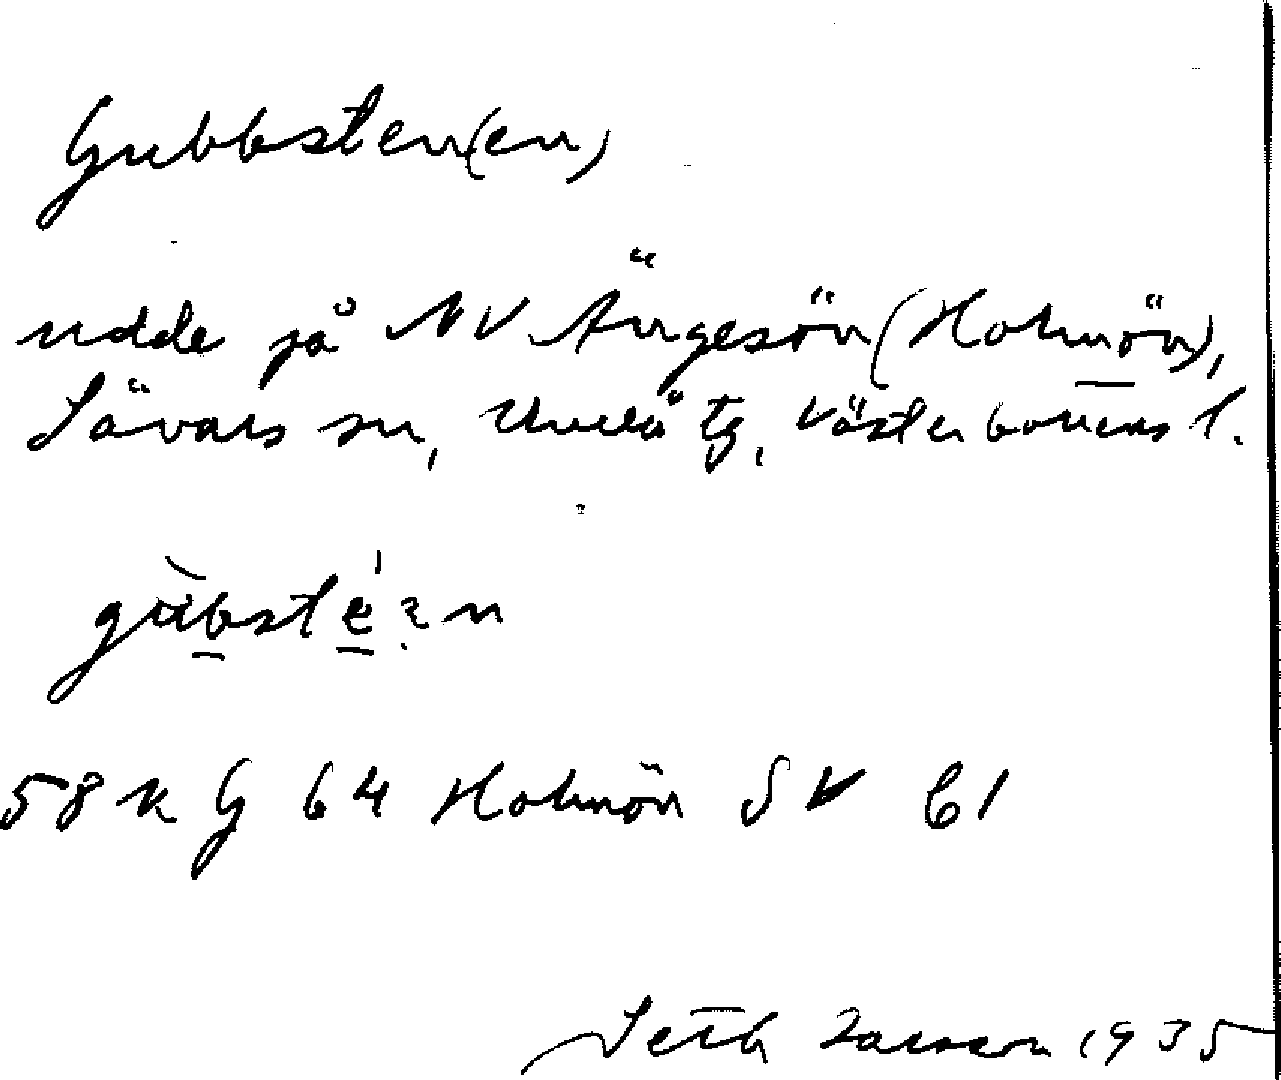 Gubbsten(en)
udde på NV Ängesön (Holmön),
Sävars sn, Umeå tg, Västerbottens l.
58 K G 64 Holmön SV 61
Seth Larsson 1935